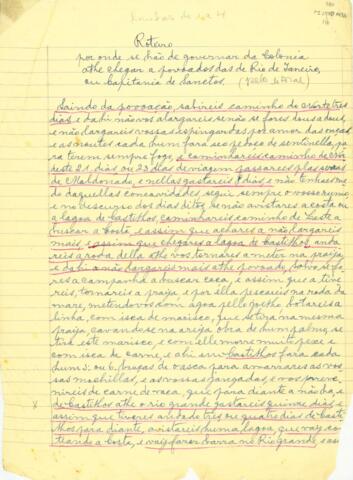 Roteiro
por onde se hão de governar da Colonia
athe chegar a povoados das de Rio de Janeiro,
ou Capitania de Sanctos. (pello litoral)
Saindo da povoação, sabireis caminho do norte tres
dias, e dahi não vos alargareis senão se fores dous a dous,
e não largareis vossas espingardas por amor das onças,
e as noutes cada hum fara seo pedaço de sentinella, pa
ra terem sempre fogo, e caminhareis caminho de
deste 21 dias ou 23 dias de viagem gastareis
de Maldonado, e nellas gastareis dias, e não tenhais me
do daquellas concavidades segui sempre o vosso rumo
e no descurso dos dias ditos, se não avistares a costa ou
a lagoa de Castilhos, caminhareis caminho de Leste a
buscar a costa, e assim que achares a não largareis
mais, e assim que chegares a lagoa de Castilhos, anda
reis a roda della athe vos tornar a meter na praija,
e dahi a não largareis mais athe povoado,
a campanha a buscar caça, e assim que a tive
reis, tornareis a praija e por ella pescareis na roda do
mar, metidovos dom agoa pello goelho botareis a
linha, com isca de marisco, que se tira na mesma
praija, cavandose na areija obra de hum palmo, se
tira este marisco, e com elle morre muito peixe e
com isca de carne, e ahi em Castilhos fara cada
hum 5. ou 6. braças de vasca para amarrares as vos
sas mochillas, e as vossas jangadas, e vos preve
nireis de carne de vaca, que para diante a não ha, e
de Castilhos athe o rio grande gastareis quinze dias, e
assim que tiveres andado tres ou quatro dias de Casti
lhos para diante, avistareis huma lagoa, que vay cos
teando a costa, e vay fazer barra no Rio grande, e as